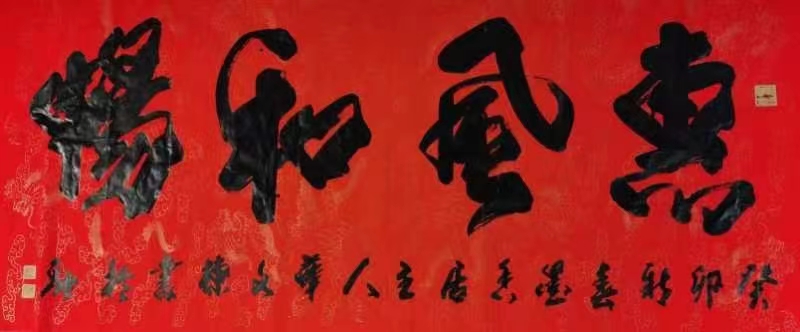 惠風和暢
癸卯新春墨香居主人華文棟書於